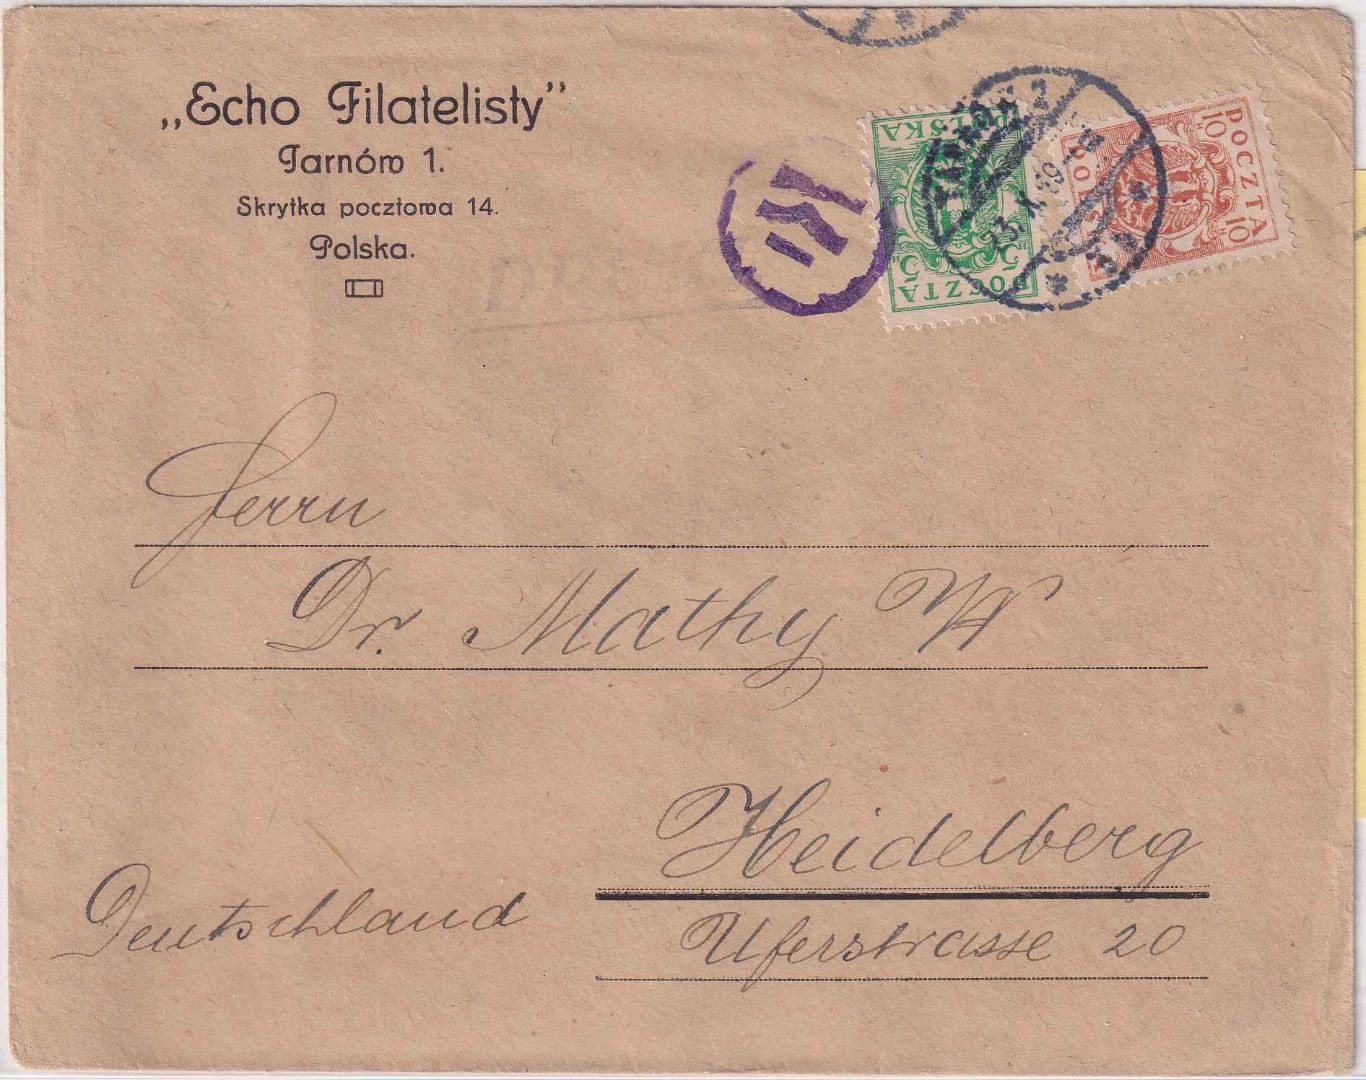 „Echo Filatelisty”
Tarnów 1.
Skrytka pocztowa 14.
Polska.
POLSKA
5 5
POCZTA
POCZTA
10 10
Herrn
Dr. Mathy
Heidelberg
Deutschland
Uferstrasse 20